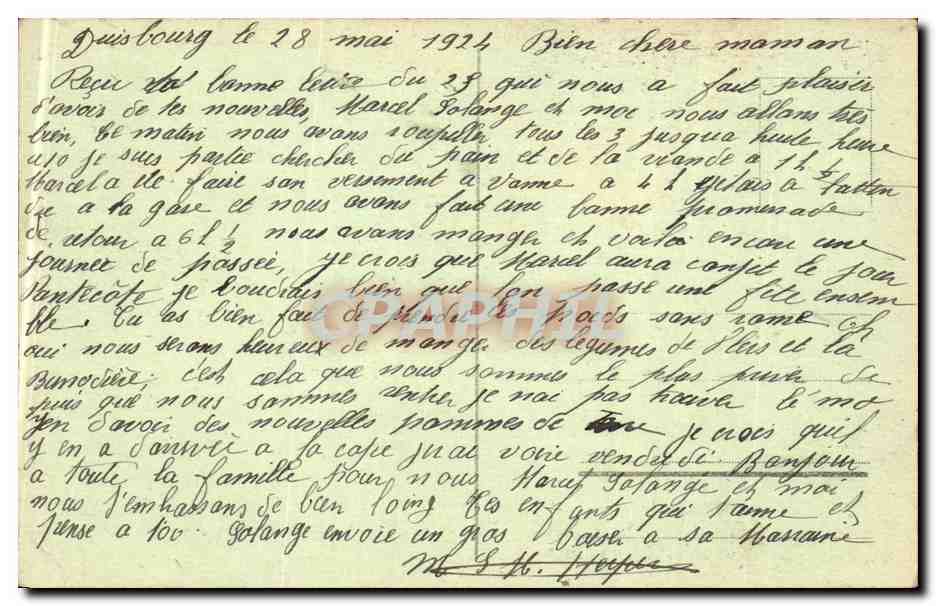 Duisbourg le 28 mai 1924 Bien chère maman
Reçu ta bonne du 25 qui nous a fait plaisir
d'avoir de tes nouvelles, Marcel Solange et moi nous allons très
bien, Ce matin nous avons roupiller tous les 3 jusqua huite heure
a 10 je suis partie chercher du pain et de la viande a 1 h ½
Marcel a été faire son versement a Vanne a 4 h jetais a latten
dre a la gare et nous avons fait une bonne promenade
de retour a 6 h ½ nous avons manger et voila encore une
journee de passée, je crois que Marcel aura congit le jour
Pantecôte je voudrais bien que lon passe une fête ensem
ble. Tu as bien fait de prendre les poids sans rame et
oui nous serons heureux de manger des légumes de Flers et la
c'est cela que nous sommes le plus priver de
puis que nous sommes je nai pas trouver le mo
yen d'avoir des nouvelles pommes de je crois quil
y en a a la cope jirai voire vendredi Bonjour
a toute la famille pour nous Marcel Solange et moi
nous t'embrassons de bien loing Tes enfants qui t'aime et
pense a toi. Solange envoie un gros baiser a sa Marraine
M S H.
GRAPHIL